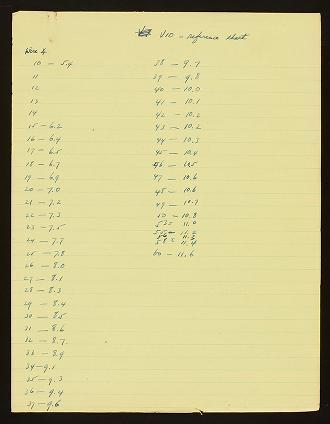 V10 - reference sheet
Wire #
10 - 5.4
11
12
13
14
15 - 6.2
16 - 6.4
17 - 6.5
18 - 6.7
19 - 6.9
20 - 7.0
21 - 7.2
22 - 7.3
23 - 7.5
24 - 7.7
25 - 7.8
26 - 8.0
27 - 8.1
28 - 8.3
29 - 8.4
30 - 8.5
31 - 8.6
32 - 8.7
33 - 8.9
34 - 9.1
35 - 9.3
36 - 9.4
37 - 9.6
38 - 9.7
39 - 9.8
40 - 10.0
41 - 10.1
42 - 10.2
43 - 10.2
44 - 10.3
45 - 10.4
46 - 10.5
47 - 10.6
48 - 10.6
49 - 10.7
50 - 10.8
53 - 11.0
55 - 11.2
56 - 11.3
58 - 11.4
60 - 11.6